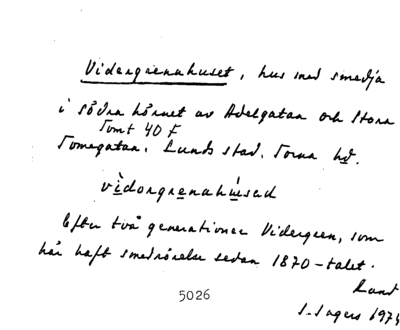 Vidergrenahuset, hus med smedja
i södra hörnet av Adelgatan och Stora
Tomt 40 F
Tomegatan. Lunds stad. Torna hd.
vìdərgrenahúsəd
Efter två generationer Vidergren, som
här haft smedrörelse sedan 1870-talet.
Lund
5026
S. Ingers 1974